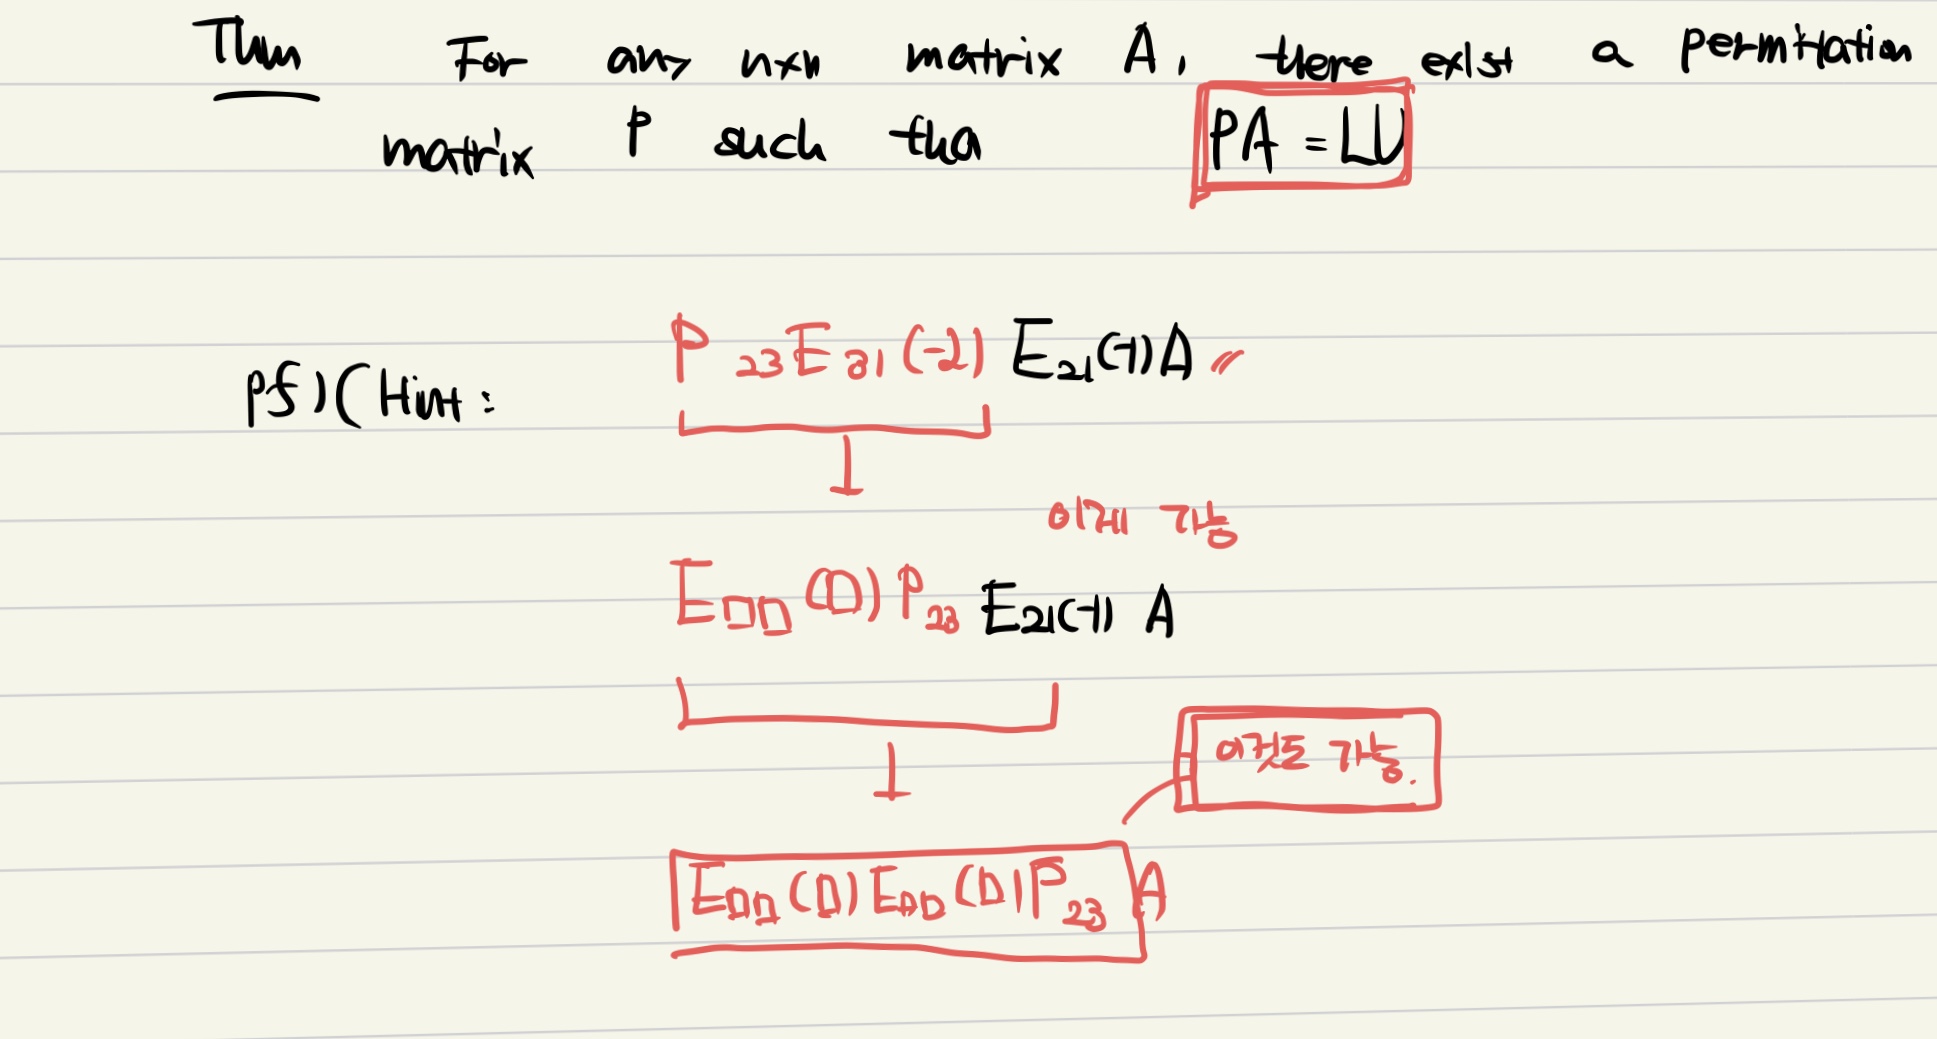 Thm For any nxn matrix A, there exist a permutation
matrix P such tha PA = LU
P₂₃E₃₁(-2) E₂₁(-1)A
pf)(Hint:
이게 가능
E□□(□)P₂₃ E₂₁(-1) A
이것도 가능.
E□□(□)E□□(□)P₂₃ A